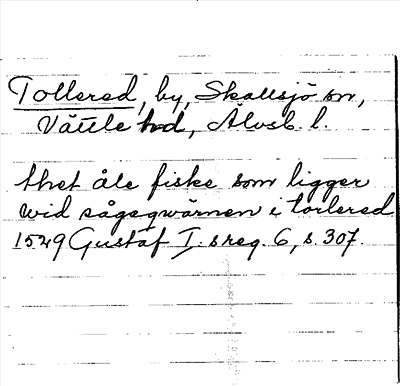 Tollered, by, Skallsjö sn,
Vättle hd, Älvsb. l.
thet åle fiske som ligger
wid sågeqwärnen i torlered
1549 Gustaf I. s reg. 6, s. 307.